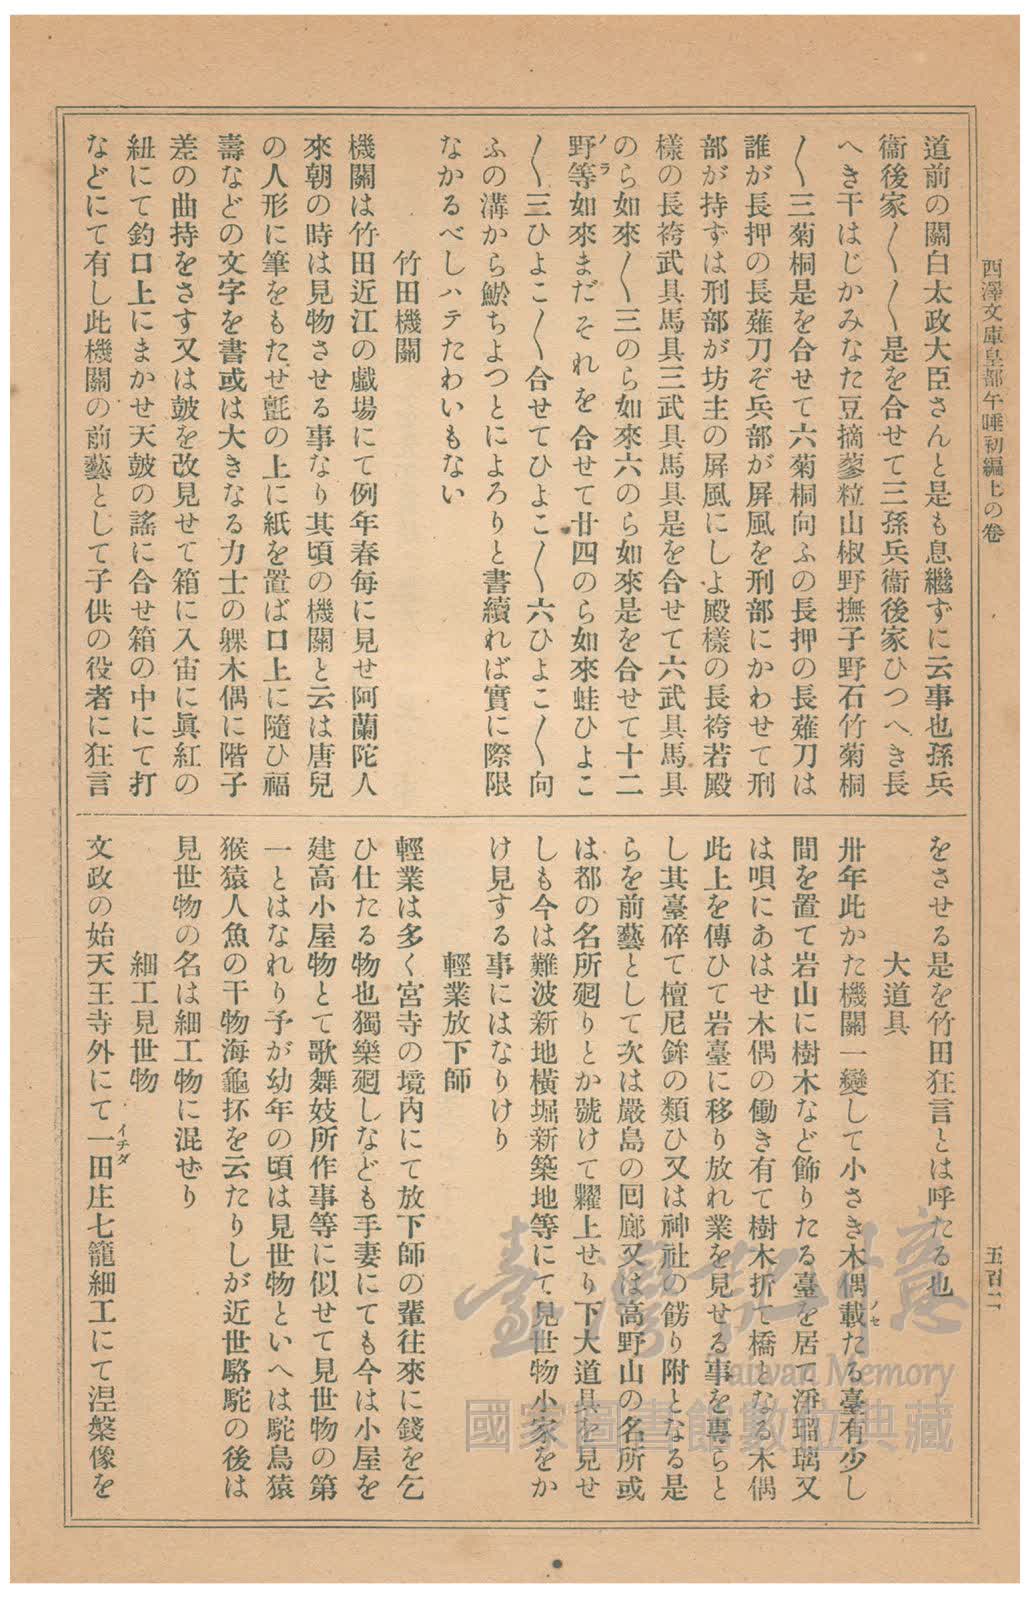 西澤文庫皇都午睡初編上の卷
五百二
道前の關白太政大臣さんと是も息繼ずに云事也孫兵
衞後家〳〵〳〵是を合せて三孫兵衞後家ひつへき長
へき干はじかみなた豆摘蓼粒山椒野撫子野石竹菊桐
〳〵三菊桐是を合せて六菊桐向ふの長押の長薙刀は
誰が長押の長薙刀ぞ兵部が屏風を刑部にかわせて刑
部が持ずは刑部が坊主の屏風にしよ殿樣の長袴若殿
樣の長袴武具馬具三武具馬具是を合せて六武具馬具
のら如來〳〵三のら如來六のら如來是を合せて十二
野等如來まだそれを合せて廿四のら如來蛙ひよこ
ノラ
〳〵三ひよこ〳〵合せてひよこ〳〵六ひよこ〳〵向
ふの溝から鰌ちよつとによろりと書續れば實に際限
なかるべしハテたわいもない
竹田機關
機關は竹田近江の戲場にて例年春每に見せ阿蘭陀人
來朝の時は見物させる事なり其頃の機關と云は唐兒
の人形に筆をもたせ氈の上に紙を置ば口上に隨ひ福
壽などの文字を書或は大きなる力士の躶木偶に階子
差の曲持をさす又は皷を改見せて箱に入宙に眞紅の
紐にて釣口上にまかせ天皷の謠に合せ箱の中にて打
などにて有し此機關の前藝として子供の役者に狂言
をさせる是を竹田狂言とは呼たる也
大道具
卅年此かた機關一變して小さき木偶載たる臺有少し
ノセ
間を置て岩山に樹木など飾りたる臺を居て淨瑠璃又
は唄にあはせ木偶の働き有て樹木折て橋となる木偶
此上を傳ひて岩臺に移り放れ業を見せる事を專らと
し其臺碎て檀尻鉾の類ひ又は神社の餝り附となる是
らを前藝として次は嚴島の囘廊又は高野山の名所或
は都の名所廻りとか號けて糶上せり下大道具を見せ
しも今は難波新地橫堀新築地等にて見世物小家をか
け見する事にはなりけり
輕業放下師
輕業は多く宮寺の境內にて放下師の輩往來に錢を乞
ひ仕たる物也獨樂廻しなども手妻にても今は小屋を
建高小屋物とて歌舞妓所作事等に似せて見世物の第
一とはなれり予が幼年の頃は見世物といへは駝鳥猿
猴猿人魚の干物海龜抔を云たりしが近世駱駝の後は
見世物の名は細工物に混ぜり
細工見世物
文政の始天王寺外にて一田庄七籠細工にて涅槃像を
イチダ
臺灣記憶
Taiwan Memory
國家圖書館數位典藏